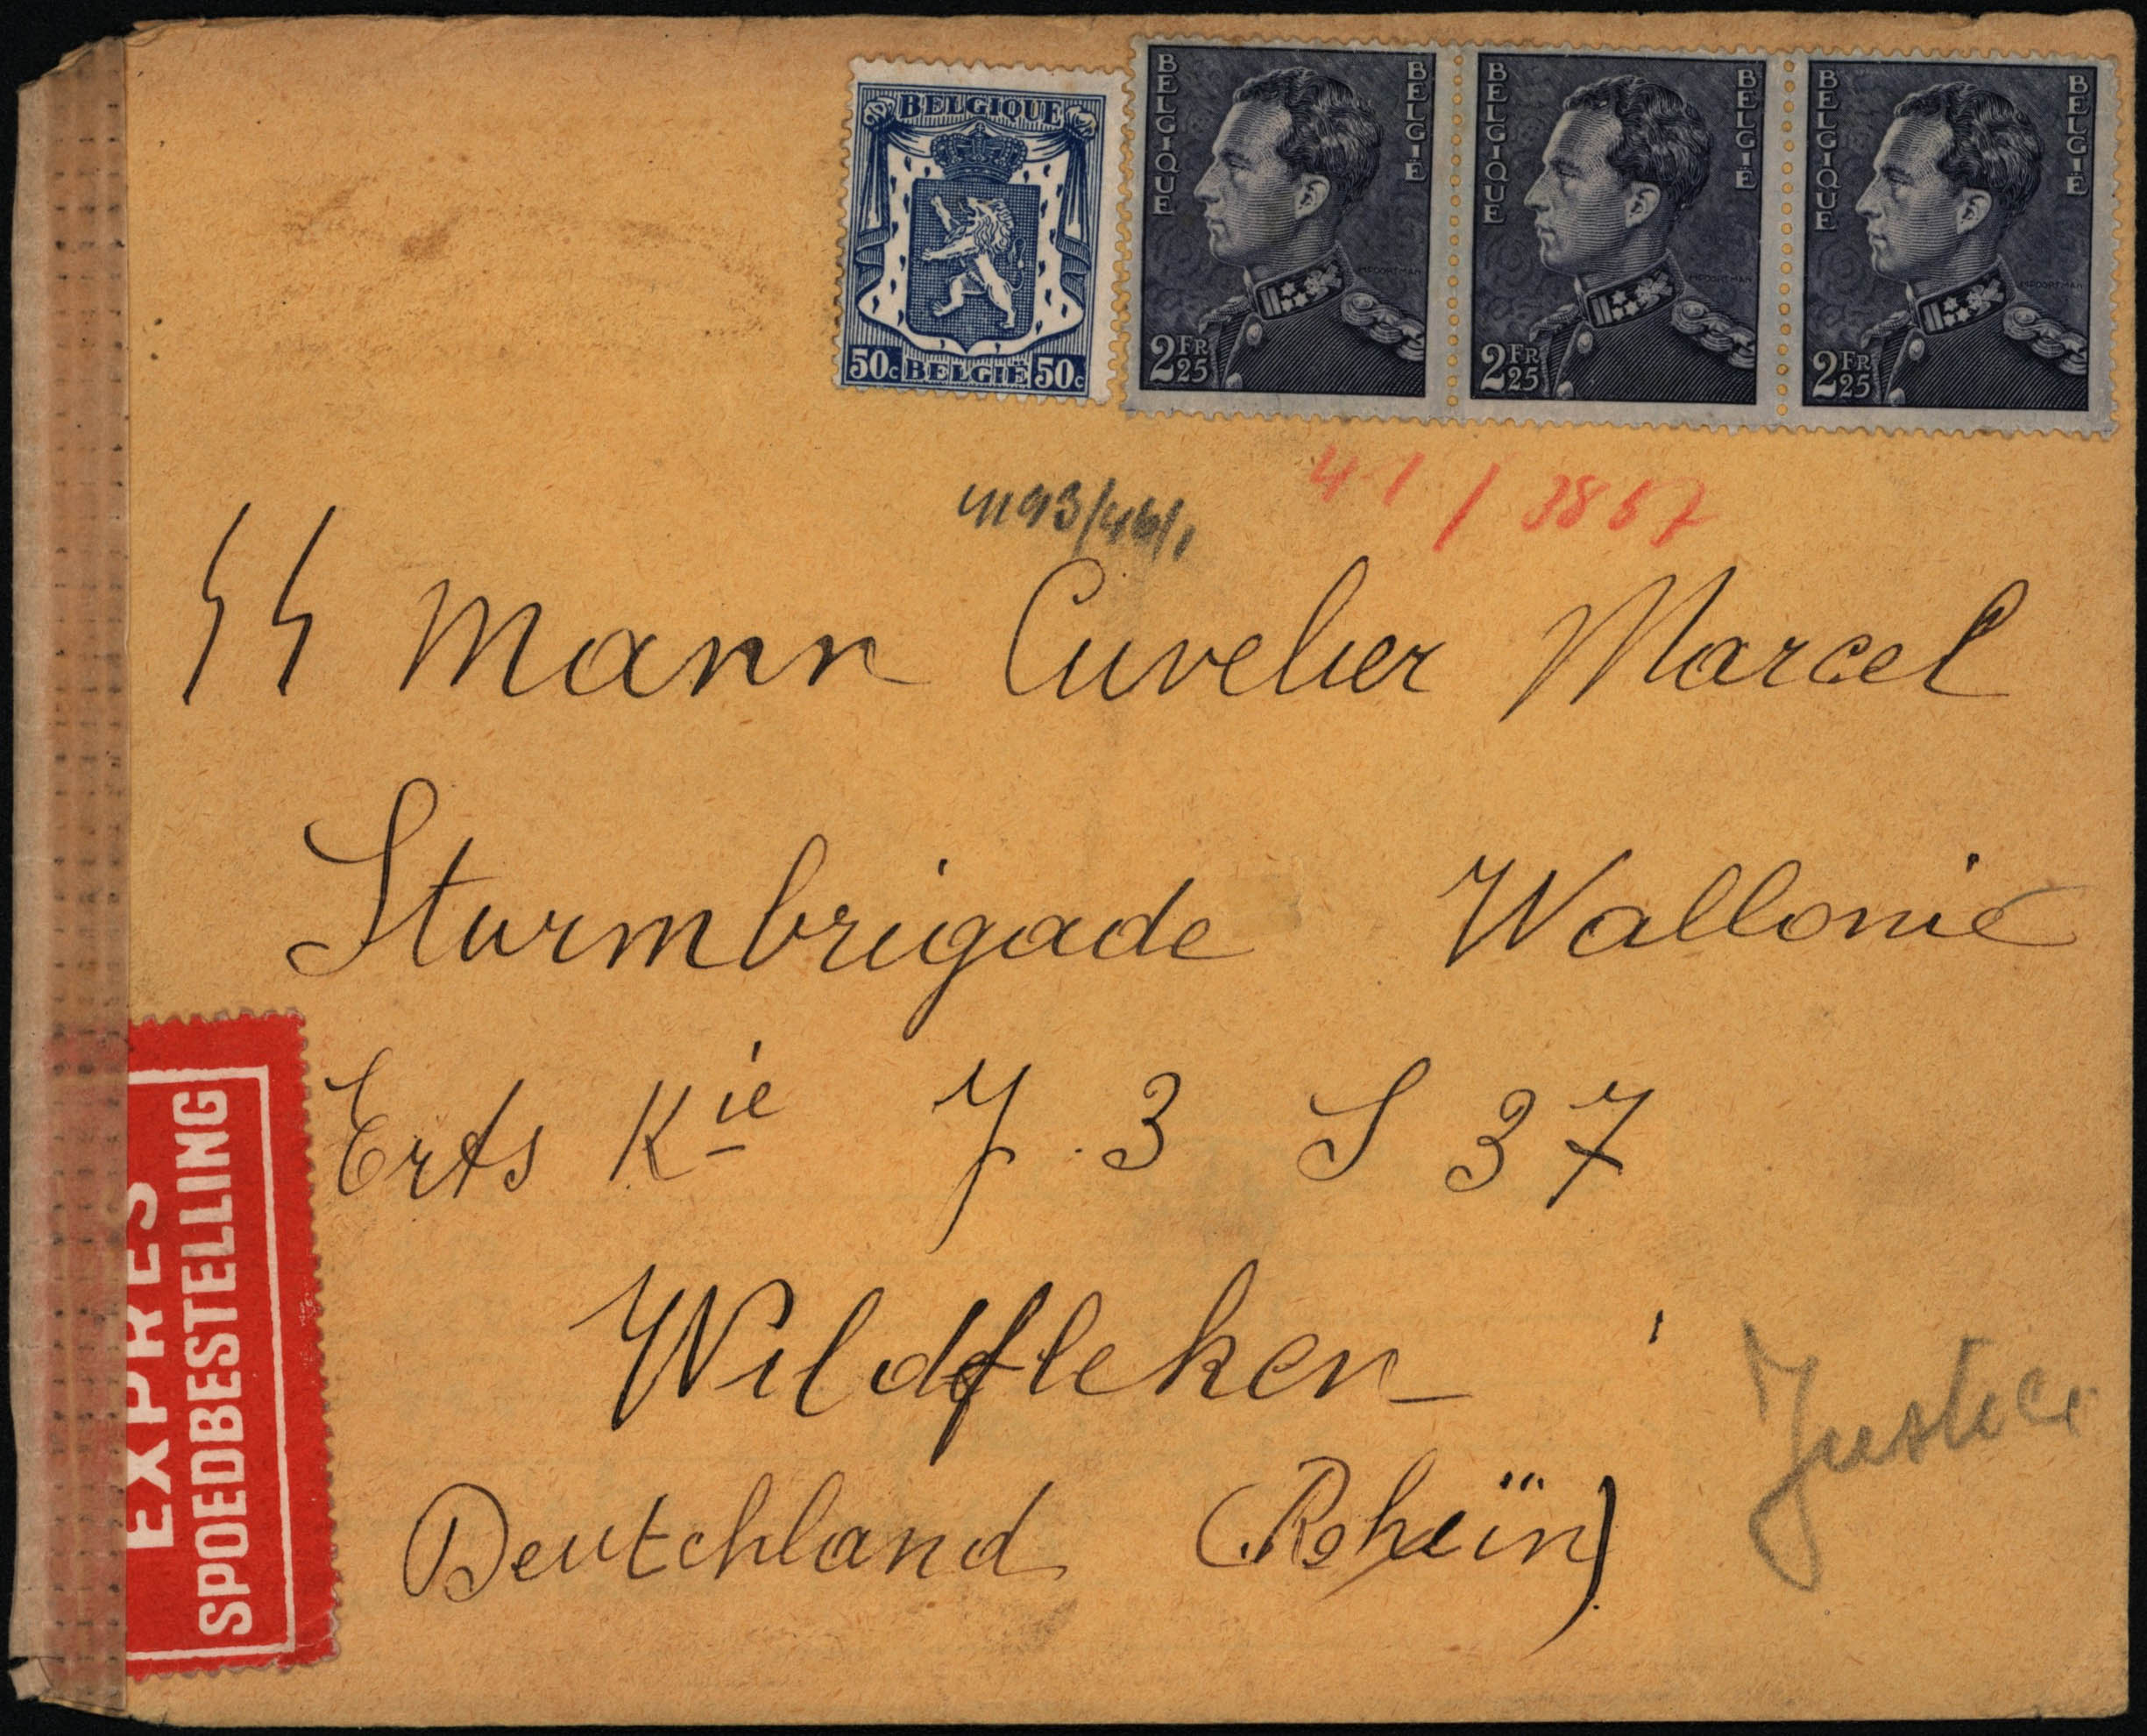 BELGIQUE
50c BELGIË 50c
BELGIQUE BELGIË
MPOORTMAN
2FR25
BELGIQUE BELGIË
MPOORTMAN
2FR25
BELGIQUE BELGIË
MPOORTMAN
2FR25
41 / 3857
SS Mann Cuvelier Marcel
Sturmbrigade Wallonie
Erts Kie J. 3 S 37
Wildfleken
Deutchland (Rohein)
Justice
EXPRES
SPOEDBESTELLING